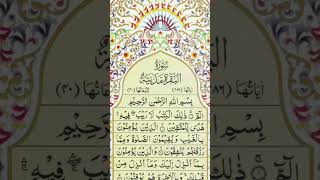 سُوْرَةُ
الْبَقَرَةِ مَدَنِيَّةٌ
اٰيَاتُهَا (٢٨٦) (٤٠)
بِسْمِ اللهِ الرَّحْمٰنِ الرَّحِيْمِ
الٓمّٓ ۚ ذٰلِكَ الْكِتٰبُ لَا رَيْبَ ۛ فِيْهِ ۛ
هُدًى لِّلْمُتَّقِيْنَ ۙ الَّذِيْنَ يُؤْمِنُوْنَ
بِالْغَيْبِ وَيُقِيْمُوْنَ الصَّلٰوةَ وَمِمَّا
رَزَقْنٰهُمْ يُنْفِقُوْنَ ۙ وَالَّذِيْنَ يُؤْمِنُوْنَ
بِمَآ اُنْزِلَ اِلَيْكَ وَمَآ اُنْزِلَ مِنْ